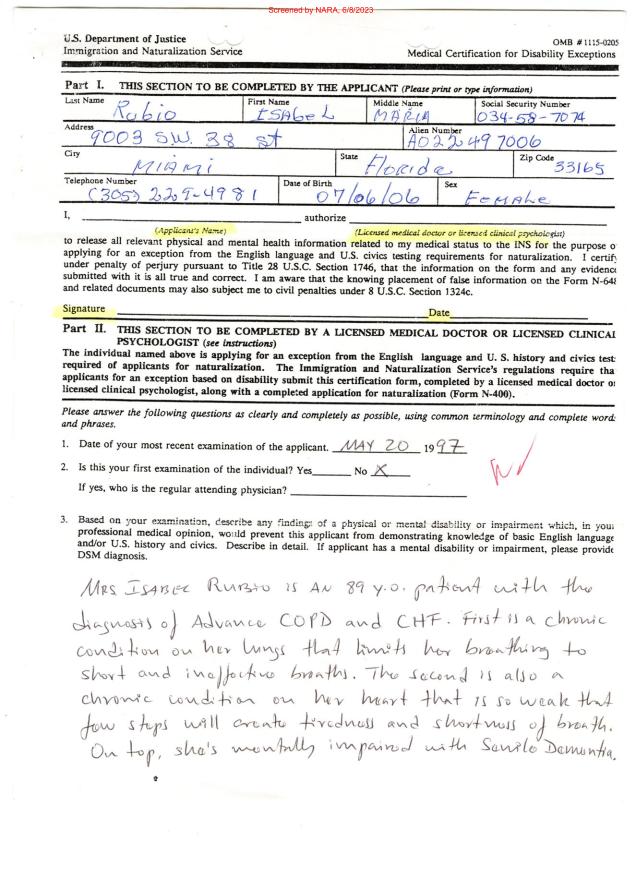 Screened by NARA, 6/8/2023
U.S. Department of Justice
Immigration and Naturalization Service
OMB #1115-0205
Medical Certification for Disability Exceptions
Part I. THIS SECTION TO BE COMPLETED BY THE APPLICANT (Please print or type information)
Last Name Rubio First Name ISAbeL Middle Name MARIA Social Security Number 034-58-7074
Address 9003 S.W. 38 st Alien Number A022497006
City MIAMI State Floride Zip Code 33165
Telephone Number (305) 229-4981 Date of Birth 07/06/06 Sex FEMALe
I, authorize
(Applicant's Name) (Licensed medical doctor or licensed clinical psychologist)
to release all relevant physical and mental health information related to my medical status to the INS for the purpose o
applying for an exception from the English language and U.S. civics testing requirements for naturalization. I certify
under penalty of perjury pursuant to Title 28 U.S.C. Section 1746, that the information on the form and any evidence
submitted with it is all true and correct. I am aware that the knowing placement of false information on the Form N-648
and related documents may also subject me to civil penalties under 8 U.S.C. Section 1324c.
Signature Date
Part II. THIS SECTION TO BE COMPLETED BY A LICENSED MEDICAL DOCTOR OR LICENSED CLINICAL
PSYCHOLOGIST (see instructions)
The individual named above is applying for an exception from the English language and U. S. history and civics test
required of applicants for naturalization. The Immigration and Naturalization Service's regulations require tha
applicants for an exception based on disability submit this certification form, completed by a licensed medical doctor o
licensed clinical psychologist, along with a completed application for naturalization (Form N-400).
Please answer the following questions as clearly and completely as possible, using common terminology and complete word
and phrases.
1. Date of your most recent examination of the applicant. MAY 20 1997
2. Is this your first examination of the individual? Yes No X
If yes, who is the regular attending physician?
3. Based on your examination, describe any findings of a physical or mental disability or impairment which, in your
professional medical opinion, would prevent this applicant from demonstrating knowledge of basic English language
and/or U.S. history and civics. Describe in detail. If applicant has a mental disability or impairment, please provide
DSM diagnosis.
MRS ISABEL RUBIO IS AN 89 y.o. patient with the
diagnosis of Advance COPD and CHF. First is a chronic
condition on her lungs that limits her breathing to
short and ineffective breaths. The second is also a
chronic condition on her heart that is so weak that
few steps will create tiredness and shortness of breath.
On top, she's mentally impaired with Senile Dementia.